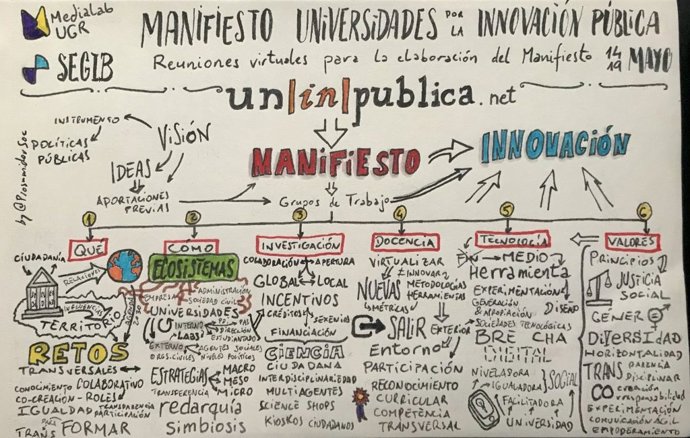 MediaLab
UGR
SEGIB
MANIFIESTO UNIVERSIDADES POR LA INNOVACIÓN PÚBLICA
Reuniones virtuales para la elaboración del Manifiesto 14 19 MAYO
un|in|publica.net
INSTRUMENTO
POLÍTICAS
PÚBLICAS
VISIÓN
IDEAS
APORTACIONES
PREVIAS
by @ProsumidorSoc
MANIFIESTO
INNOVACIÓN
Grupos de Trabajo
1 2 3 4 5 6
QUÉ
CIUDADANÍA
RELACIONES
INFLUENCIA
TERRITORIO
RETOS
TRANSVERSALES
CONOCIMIENTO COLABORATIVO
CO-CREACIÓN - ROLES
IGUALDAD TRANSPARENCIA
PARTICIPACIÓN
PARA
TRANSFORMAR
CÓMO
ECOSISTEMAS
EMPRESA 4 ADMINISTRACIÓN
SOCIEDAD CIVIL
UNIVERSIDADES
INTERNO
LABS
PAS
PDI
DIRECCIÓN
ESTUDIANTADO
EXTERNO
AGENTES SOCIALES
ORGS. CIVILES
NIVELES POLÍTICOS
ESTRATEGIAS
TRANSFERENCIA
MACRO
MESO
MICRO
redarquía
Simbiosis
INVESTIGACIÓN
COLABORACIÓN APERTURA
GLOBAL LOCAL
INCENTIVOS
CRÉDITOS
SEXENIOS
FINANCIACIÓN
CIENCIA
CIUDADANA
INTERDISCIPLINARIEDAD
MULTIAGENTES
SCIENCE SHOPS
KIOSKOS CIUDADANOS
DOCENCIA
VIRTUALIZAR
≠ INNOVAR
NUEVAS
METODOLOGÍAS
HERRAMIENTAS
MÉTRICAS
SALIR
EXTERIOR
Entorno
PARTICIPACIÓN
RECONOCIMIENTO
CURRICULAR
COMPETENCIA
TRANSVERSAL
TECNOLOGÍA
FIN MEDIO
Herramienta
EXPERIMENTACIÓN
GENERACIÓN
& APROPIACIÓN
DISEÑO
SOCIEDADES TECNOLÓGICAS
BRECHA
DIGITAL
NIVELADORA
IGUALADORA
SOCIAL
FACILITADORA
UNIVERSIDAD
VALORES
PRINCIPIOS
JUSTICIA
SOCIAL
GÉNERO
DIVERSIDAD
HORIZONTALIDAD
TRANS PARENCIA
DISCIPLINAR
CO creación
rresponsabilidad
EXPERIMENTACIÓN
COMUNICACIÓN ÁGIL
EMPODERAMIENTO